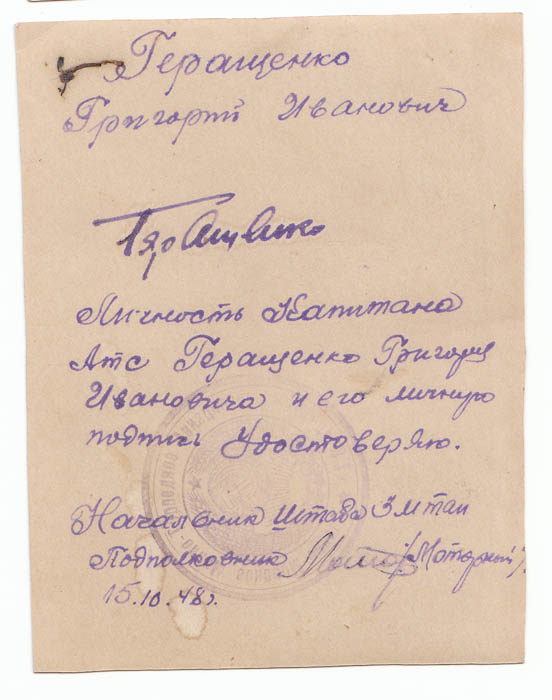 Геращенко
Григорий Иванович
Геращенко
Личность Капитана
Атс Геращенко Григория
Ивановича и его личную
подпись Удостоверяю.
Начальник Штаба 3 мтап
Подполковник (Моторный).
15.10.48г.